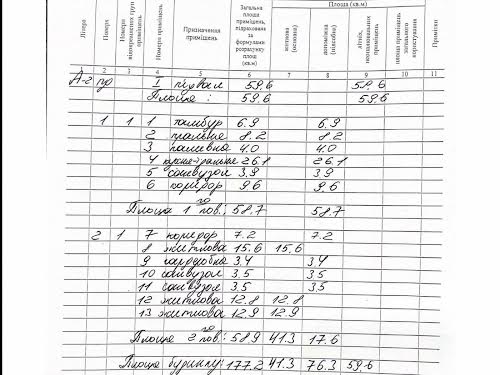 Площа (кв.м)
Літера
Поверхи
Номери приміщень
Призначення приміщень
Загальна площа приміщень, підрахована за формулами розрахунку площ (кв.м)
житлова (основна)
допоміжна (підсобна)
літніх, неопалювальних приміщень
площа приміщень загального користування
Примітки
1 2 3 4 5 6 7 8 9 10 11
А-2 пд I підвал 59.6 59.6
Площа: 59.6 59.6
1 1 1 тамбур 6.9 6.9
2 пральня 8.2 8.2
3 паливна 4.0 4.0
4 кухня-їдальня 26.1 26.1
5 санвузол 3.9 3.9
6 коридор 9.6 9.6
Площа 1 го пов.: 58.7 58.7
2 1 7 коридор 7.2 7.2
8 житлова 15.6 15.6
9 гардеробна 3.4 3.4
10 санвузол 3.5 3.5
11 санвузол 3.5 3.5
12 житлова 12.8 12.8
13 житлова 12.9 12.9
Площа 2 го пов: 58.9 41.3 17.6
Площа будинку: 177.2 41.3 76.3 59.6